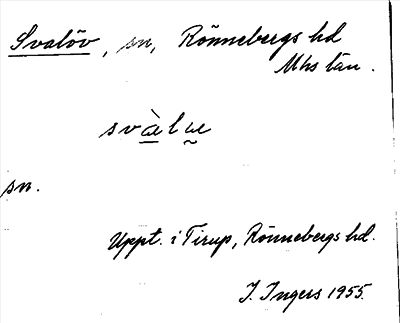 Svalöv, sn, Rönnebergs hd
Mhs län.
svàlɯ
sn.
Uppt. i Tirup, Rönnebergs hd.
J. Ingers 1955.